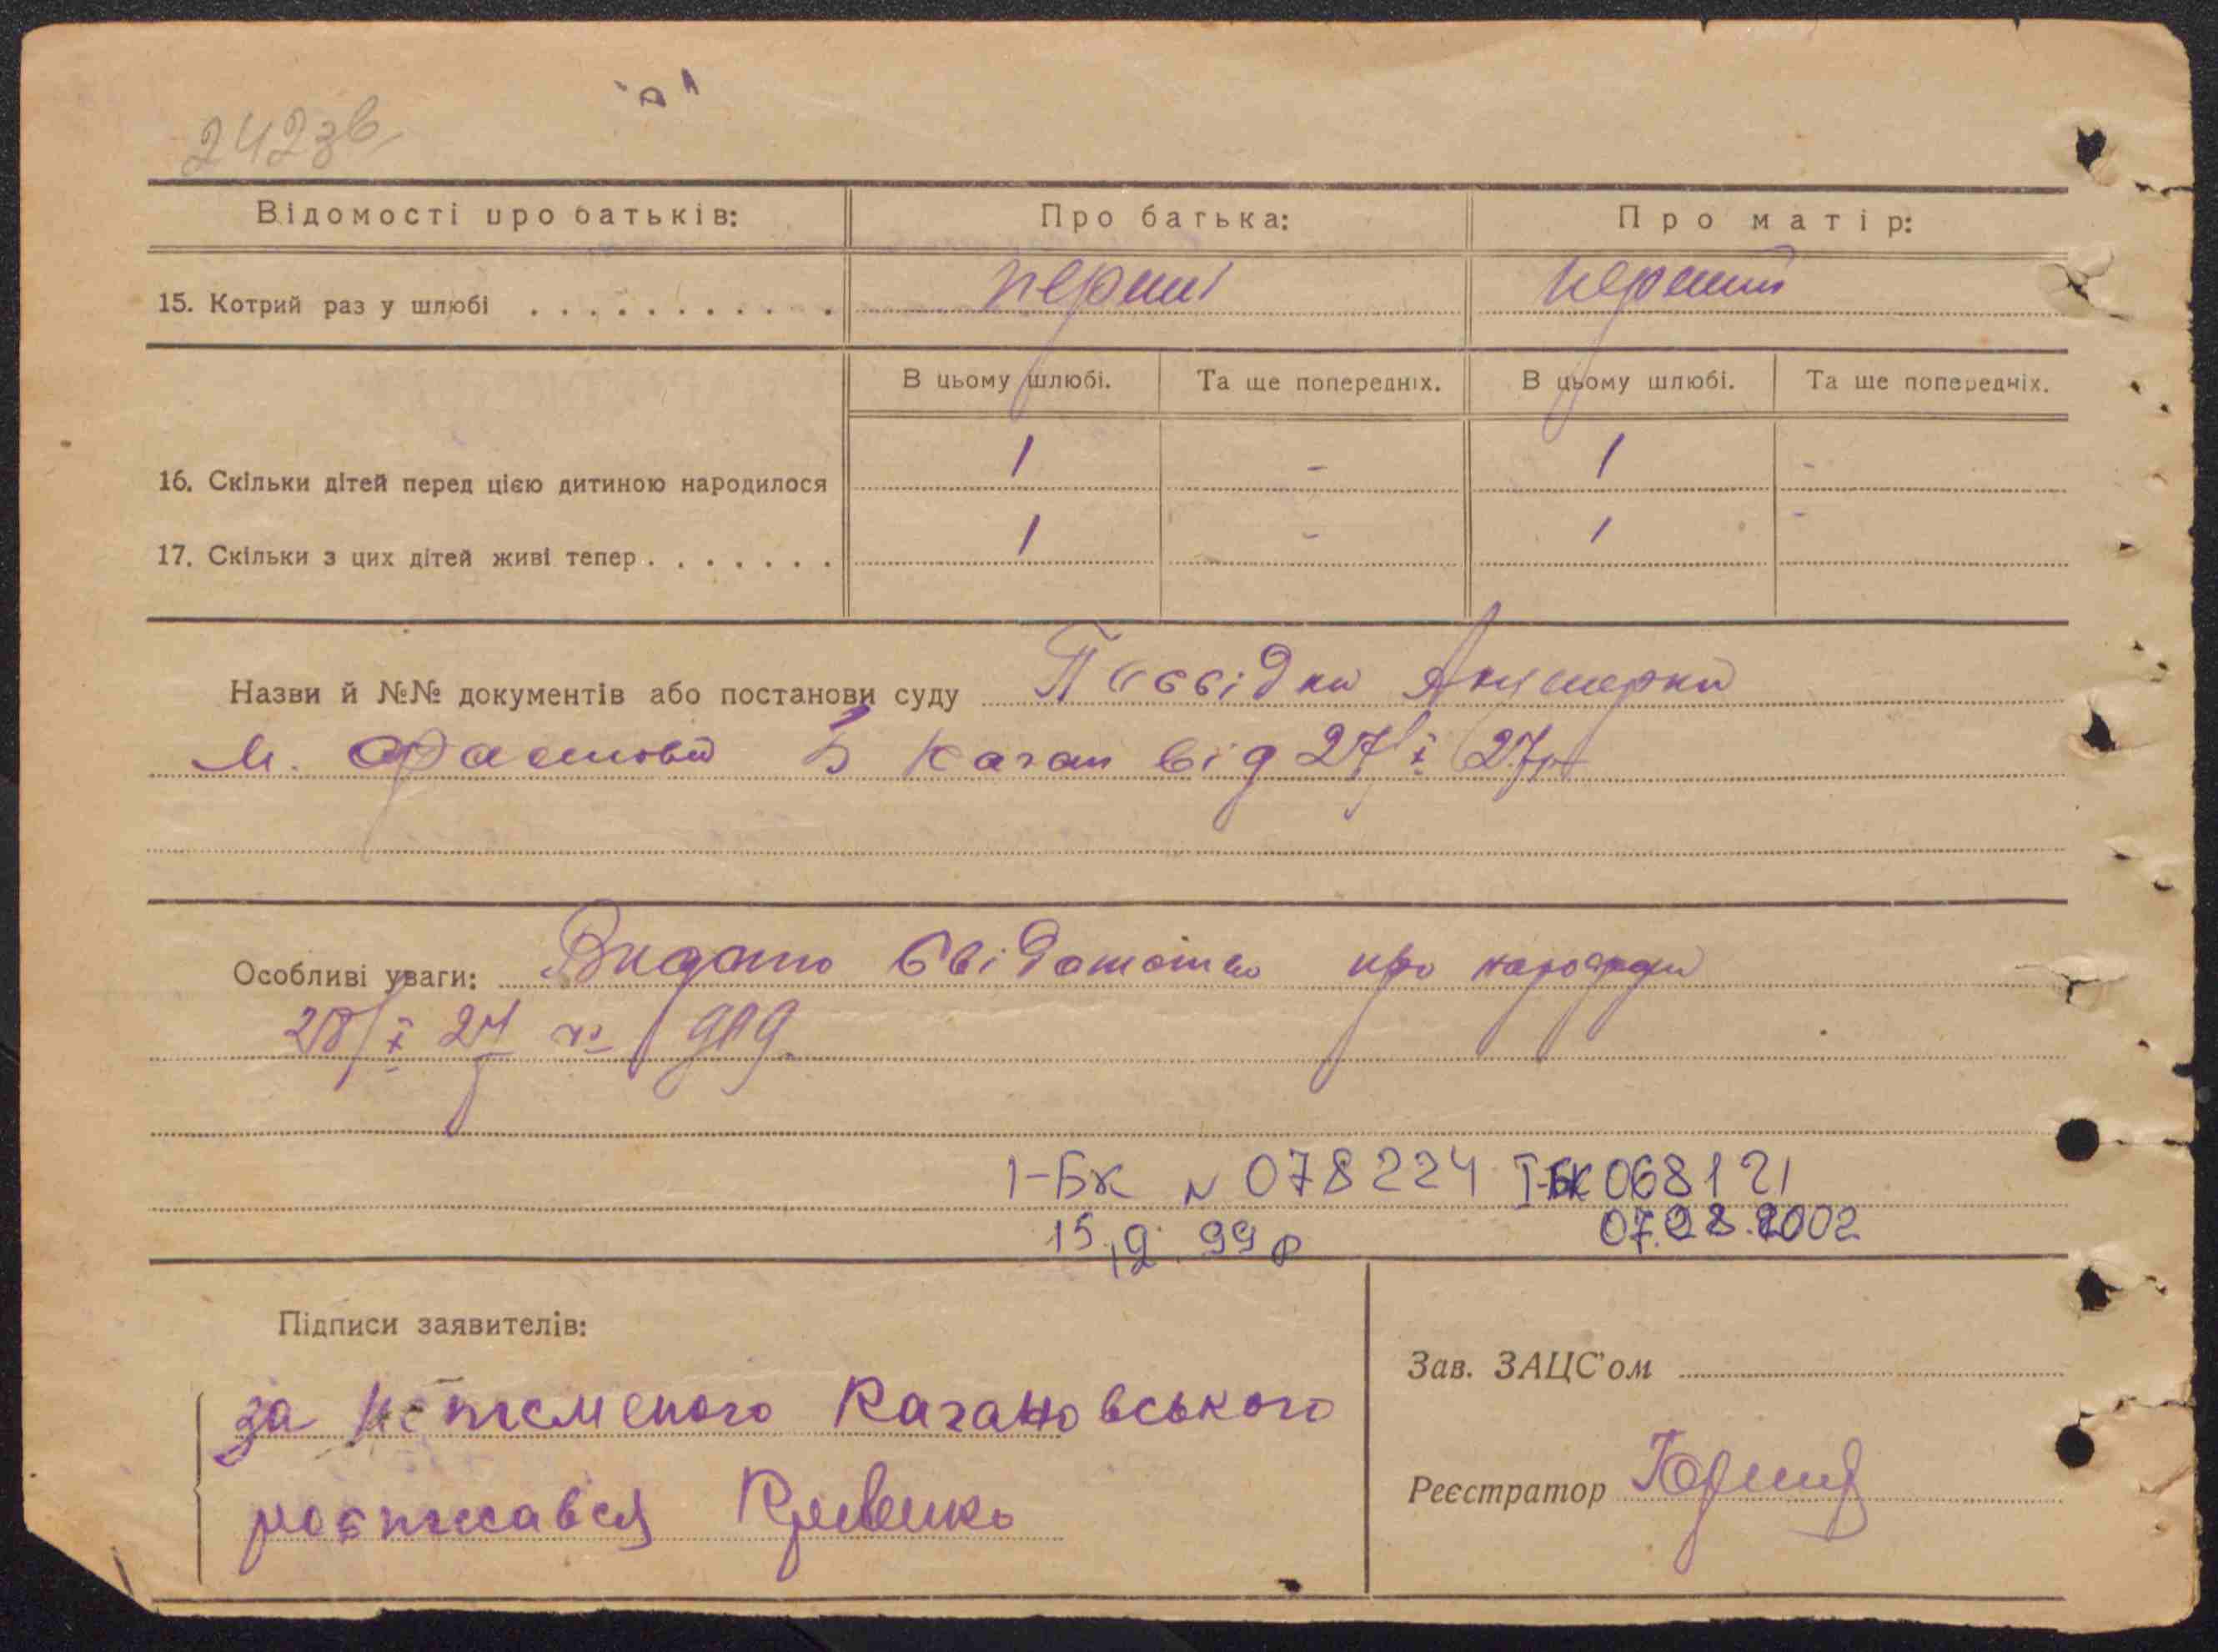 242зв
Відомості про батьків: Про батька: Про матір:
15. Котрий раз у шлюбі . . . . . . . . . . . перший перший
В цьому шлюбі. Та ще попередніх. В цьому шлюбі. Та ще попередніх.
16. Скільки дітей перед цією дитиною народилося 1 - 1 -
17. Скільки з цих дітей живі тепер . . . . . . . 1 - 1 -
Назви й №№ документів або постанови суду Посвідки Акушерки
м. Фастова Б Каган від 27/I 27р
Особливі уваги: Видано свідоцтво про народж
28/I 27 № 909.
1-БК N 078224 I-БК 068121
15.12.99р 07.08.2002
Підписи заявителів:
за неписменого Качановського
росписався Кривенко
Зав. ЗАЦС'ом
Реєстратор